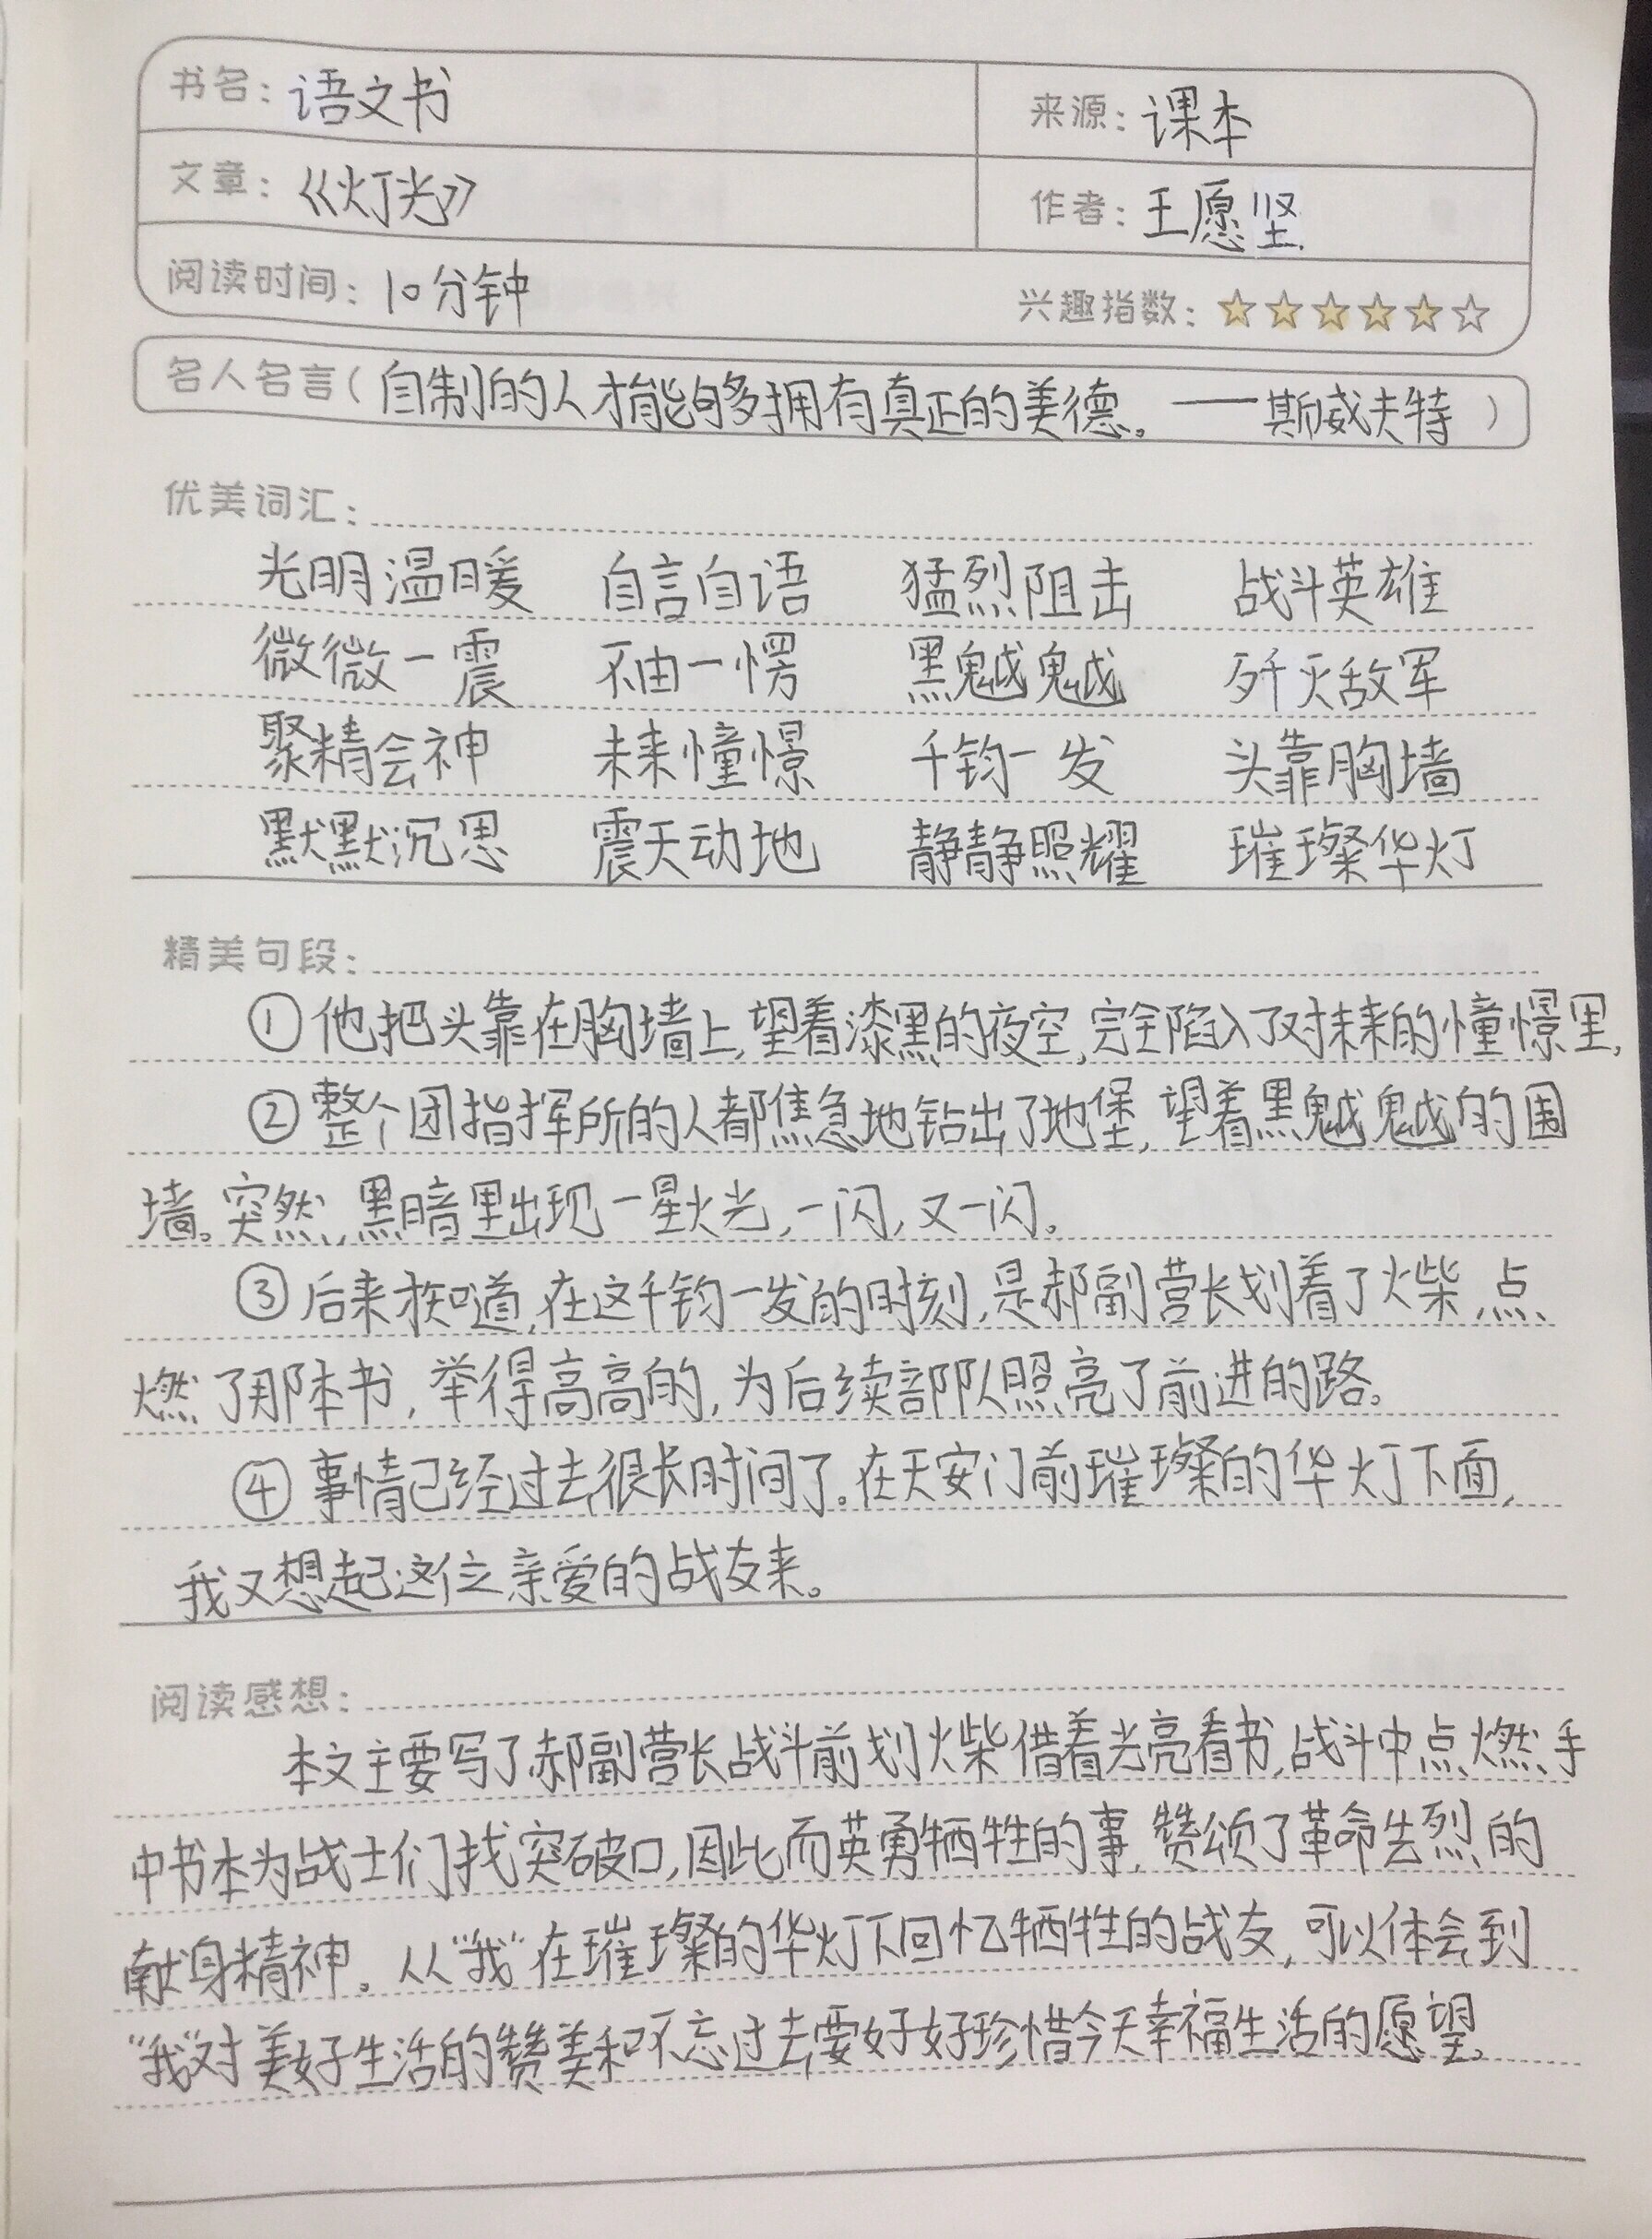 书名：语文书 来源：课本
文章：《灯光》 作者：王愿坚
阅读时间：10分钟 兴趣指数：☆☆☆☆☆☆
名人名言（自制的人才能够拥有真正的美德。——斯威夫特）
优美词汇：
光明温暖 自言自语 猛烈阻击 战斗英雄
微微一震 不由一愣 黑魆魆 歼灭敌军
聚精会神 未来憧憬 千钧一发 头靠胸墙
默默沉思 震天动地 静静照耀 璀璨华灯
精美句段：
①他把头靠在胸墙上,望着漆黑的夜空,完全陷入了对未来的憧憬里,
②整个团指挥所的人都焦急地钻出了地堡,望着黑魆魆的围
墙。突然,黑暗里出现一星火光,一闪,又一闪。
③后来才知道,在这千钧一发的时刻,是郝副营长划着了火柴,点
燃了那本书,举得高高的,为后续部队照亮了前进的路。
④事情已经过去很长时间了。在天安门前璀璨的华灯下面,
我又想起这位亲爱的战友来。
阅读感想：
本文主要写了郝副营长战斗前划火柴借着光亮看书,战斗中点燃手
中书本为战士们找突破口,因此而英勇牺牲的事,赞颂了革命先烈的
献身精神。从“我”在璀璨的华灯下回忆牺牲的战友,可以体会到
“我”对美好生活的赞美和不忘过去,要好好珍惜今天幸福生活的愿望。